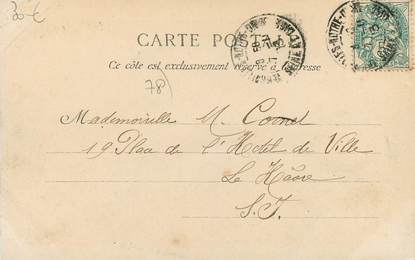 30-€
CARTE POSTALE
Ce côté est exclusivement réservé à l'adresse
78)
Mademoiselle M. Cornet
19 Place de l'Hôtel de Ville
Le Hâvre
S. I.